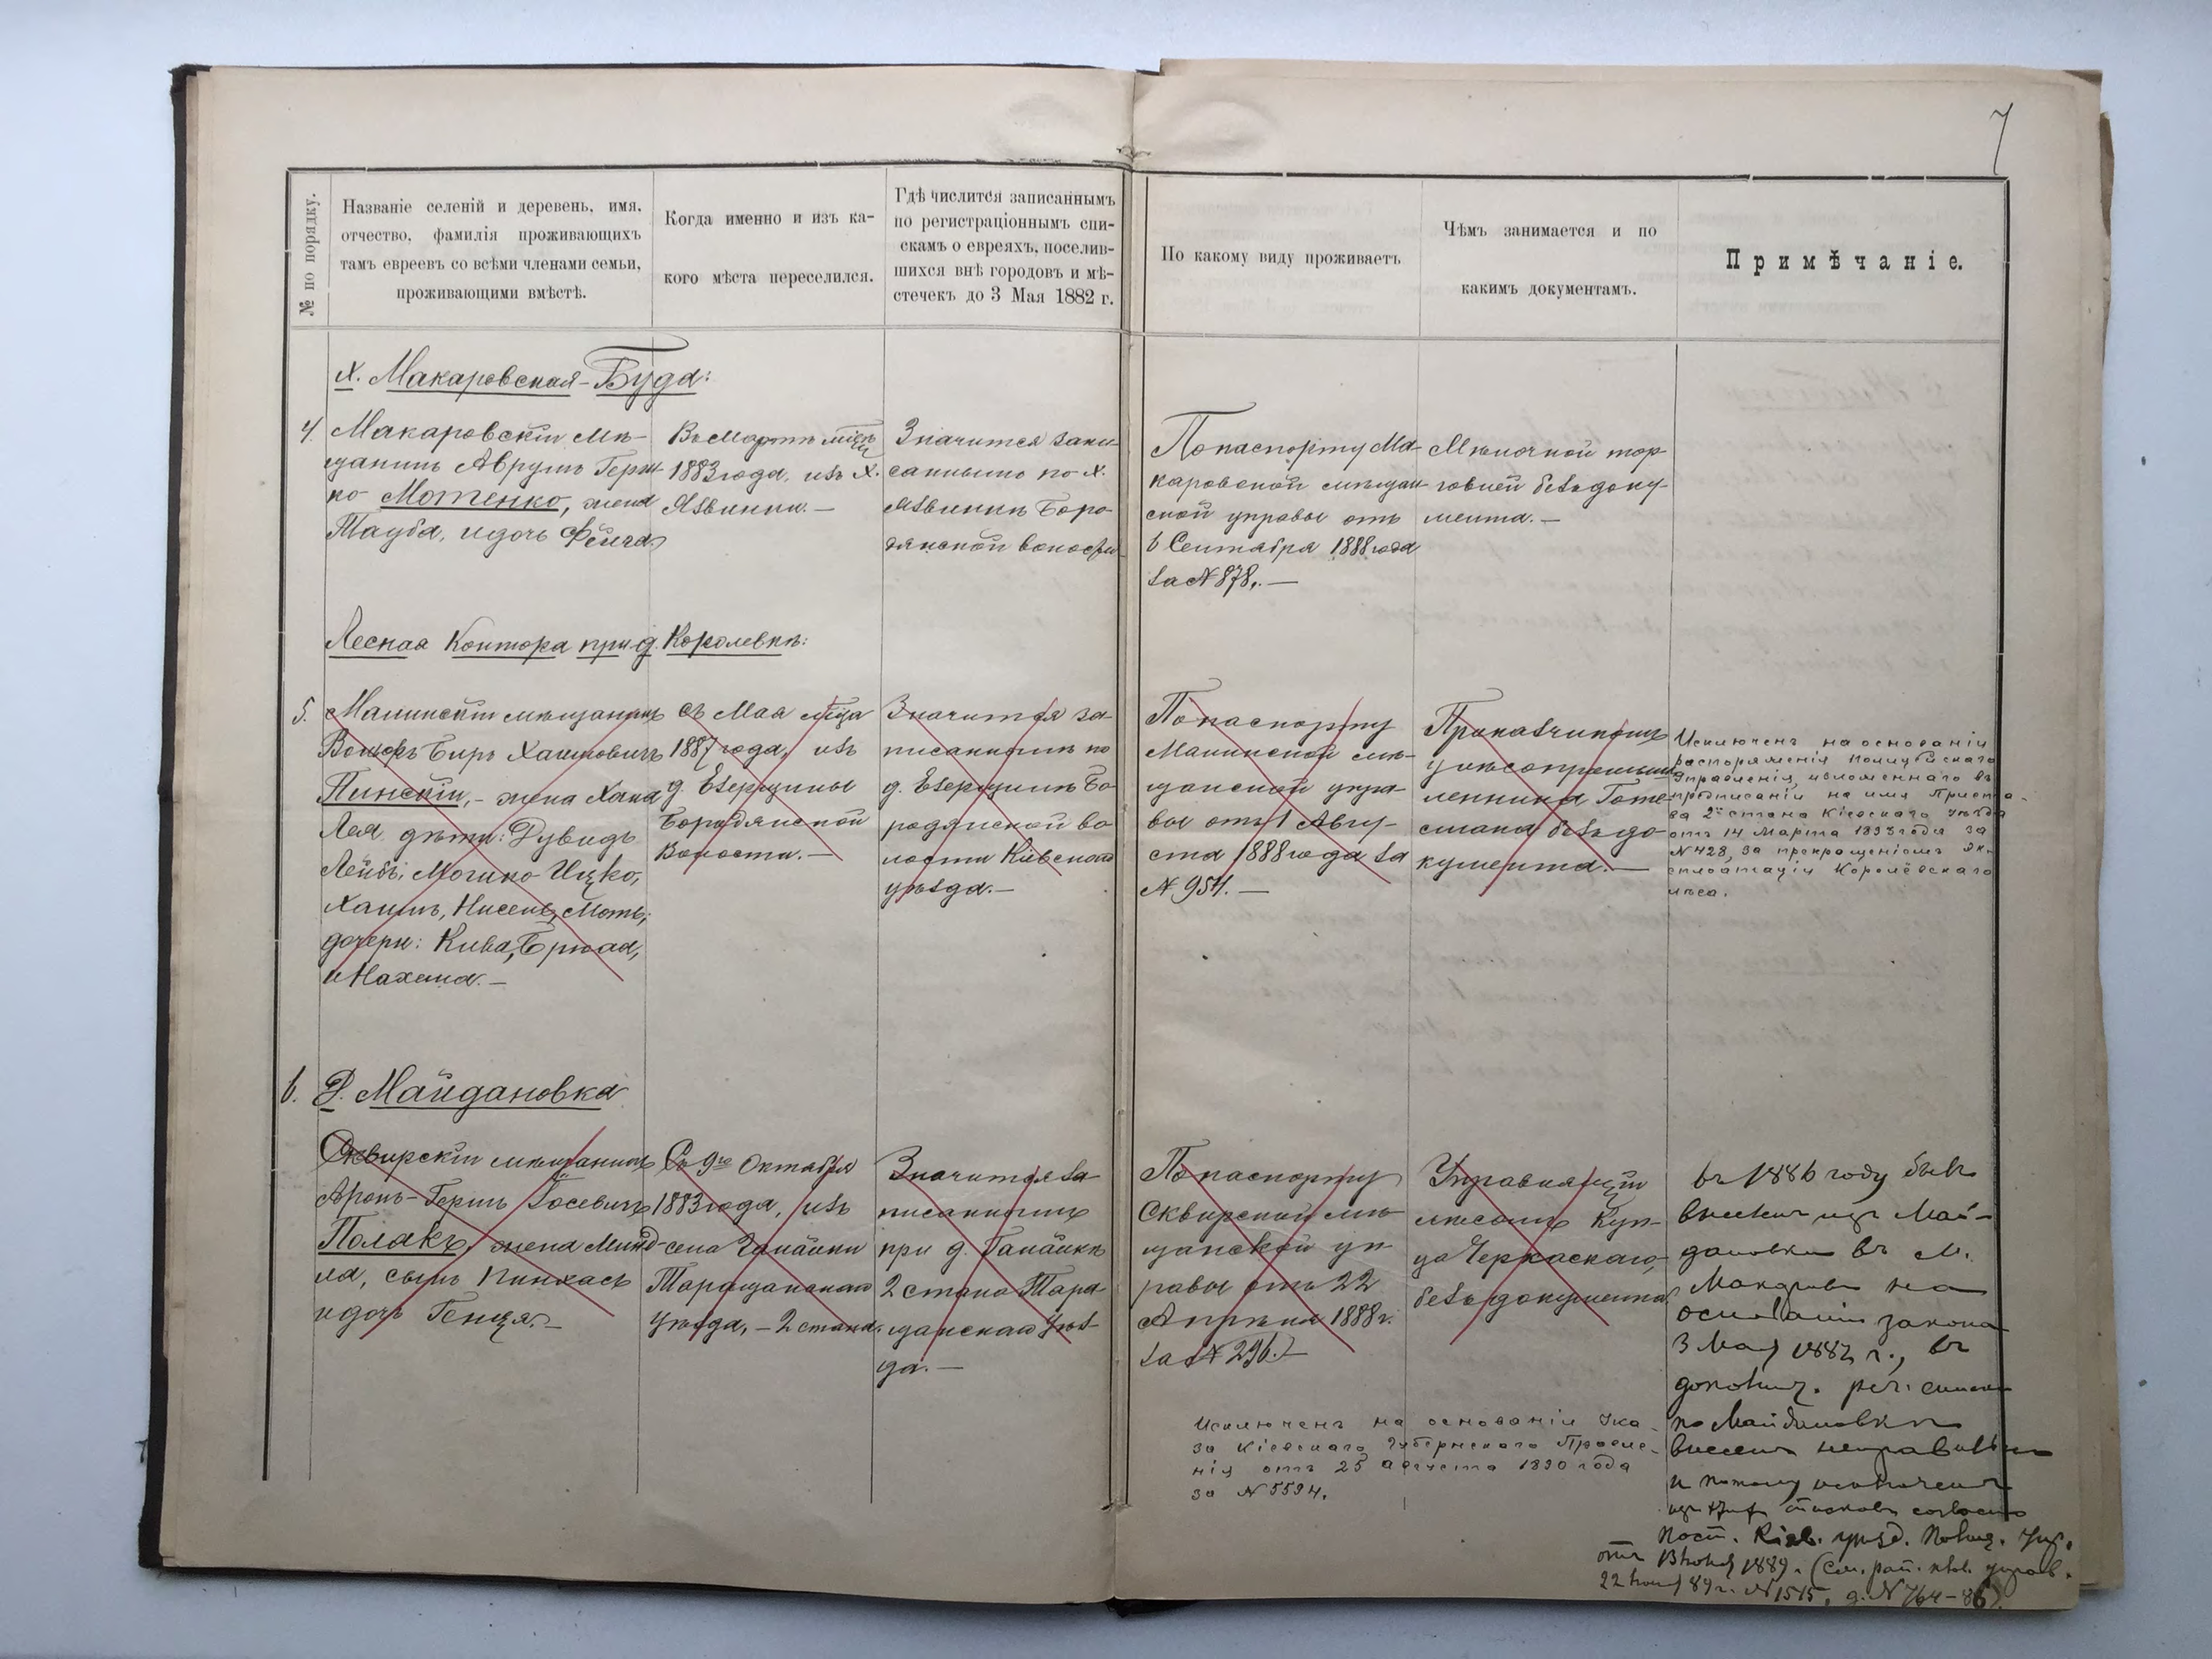 7
№ по порядку.
Названіе селеній и деревень, имя,
отчество, фамилія проживающихъ
тамъ евреевъ со всѣми членами семьи,
проживающими вмѣстѣ.
Когда именно и изъ ка-
кого мѣста переселился.
Гдѣ числится записаннымъ
по регистраціоннымъ спи-
скамъ о евреяхъ, поселив-
шихся внѣ городовъ и мѣ-
стечекъ до 3 Мая 1882 г.
По какому виду проживаетъ
Чѣмъ занимается и по
какимъ документамъ.
Примѣчаніе.
х. Макаровская-Буда:
4.
Макаровскій мѣ-
щанинъ Аврумъ Герш-
ко Мотенко, жена
Тауба, и дочь Фейга
Въ Мартѣ мѣсц
1883 года, изъ х.
Язвинки. —
Значится запи-
саннымъ по х.
Язвинкѣ Боро-
дянской волости
По паспорту Ма-
каровской мѣщан-
ской управы отъ
6 Сентября 1888 года
за № 878. —
Мѣлочной тор-
говлей безъ доку-
мента. —
Лесная Контора при д. Королевкѣ:
5.
Малинскій мѣщанинъ
Вольфъ Биръ Хаимовичъ
Пинскій, - жена Хана
Лея, дѣти: Дувидъ
Лейбъ, Ицко,
Хаимъ, Нисенъ, Мотъ,
дочери: Кива,
и Нахема. —
съ Мая мѣца
1887 года, изъ
д. Езерщины
Бородянской
Волости. —
Значится за-
писаннымъ по
д. Езерщинѣ Бо-
родянской во-
лости Кіевскаго
уѣзда. —
По паспорту
Малинской мѣ-
щанской упра-
вы отъ 1 Авгу-
ста 1888 года за
№ 954. —
Приказчикомъ
у лѣсопромыш-
ленника
безъ до-
кумента. —
Исключенъ на основаніи
распоряженія Полицейскаго
Управленія, изложеннаго въ
предписаніи на имя Приста-
ва 2го стана Кіевскаго уѣзда
отъ 14 Марта года за
№ 428, за прекращеніемъ эк-
сплоатаціи Королёвскаго
лѣса.
6.
Д. Майдановка
Сквирскій мѣщанинъ
Аронъ-Гершъ Іосевичъ
Полякъ, жена Минд-
ля, сынъ Пинхасъ
и дочь Генця. —
Съ 9го Октября
1883 года, изъ
села
Таращанскаго
уѣзда, - 2 стана.
Значится за-
писаннымъ
при д.
2 стана Тара-
щанскаго уѣз-
да. —
По паспорту
Сквирской мѣ-
щанской уп-
равы отъ 22
Апрѣля 1888 г.
за № 296. —
Управляющій
лѣсомъ Куп-
ца Черкаскаго,
безъ документа
въ 1886 году былъ
выселенъ изъ Май-
дановки въ м.
Макаровъ на
основаніи закона
3 Мая 1882 г., въ
рег. списки
по Майдановкѣ
внесенъ неправильно
и потому исключенъ
изъ списковъ согласно
пост. Кіев. уѣзд. Полиц. Упр.
отъ 13 1889 г. (См. рап. упра.
22 89 г. № 1515, д. № 764-86).
Исключенъ на основаніи Ука-
за Кіевскаго Губернскаго Правле-
нія отъ 25 августа 1890 года
за № 5594.